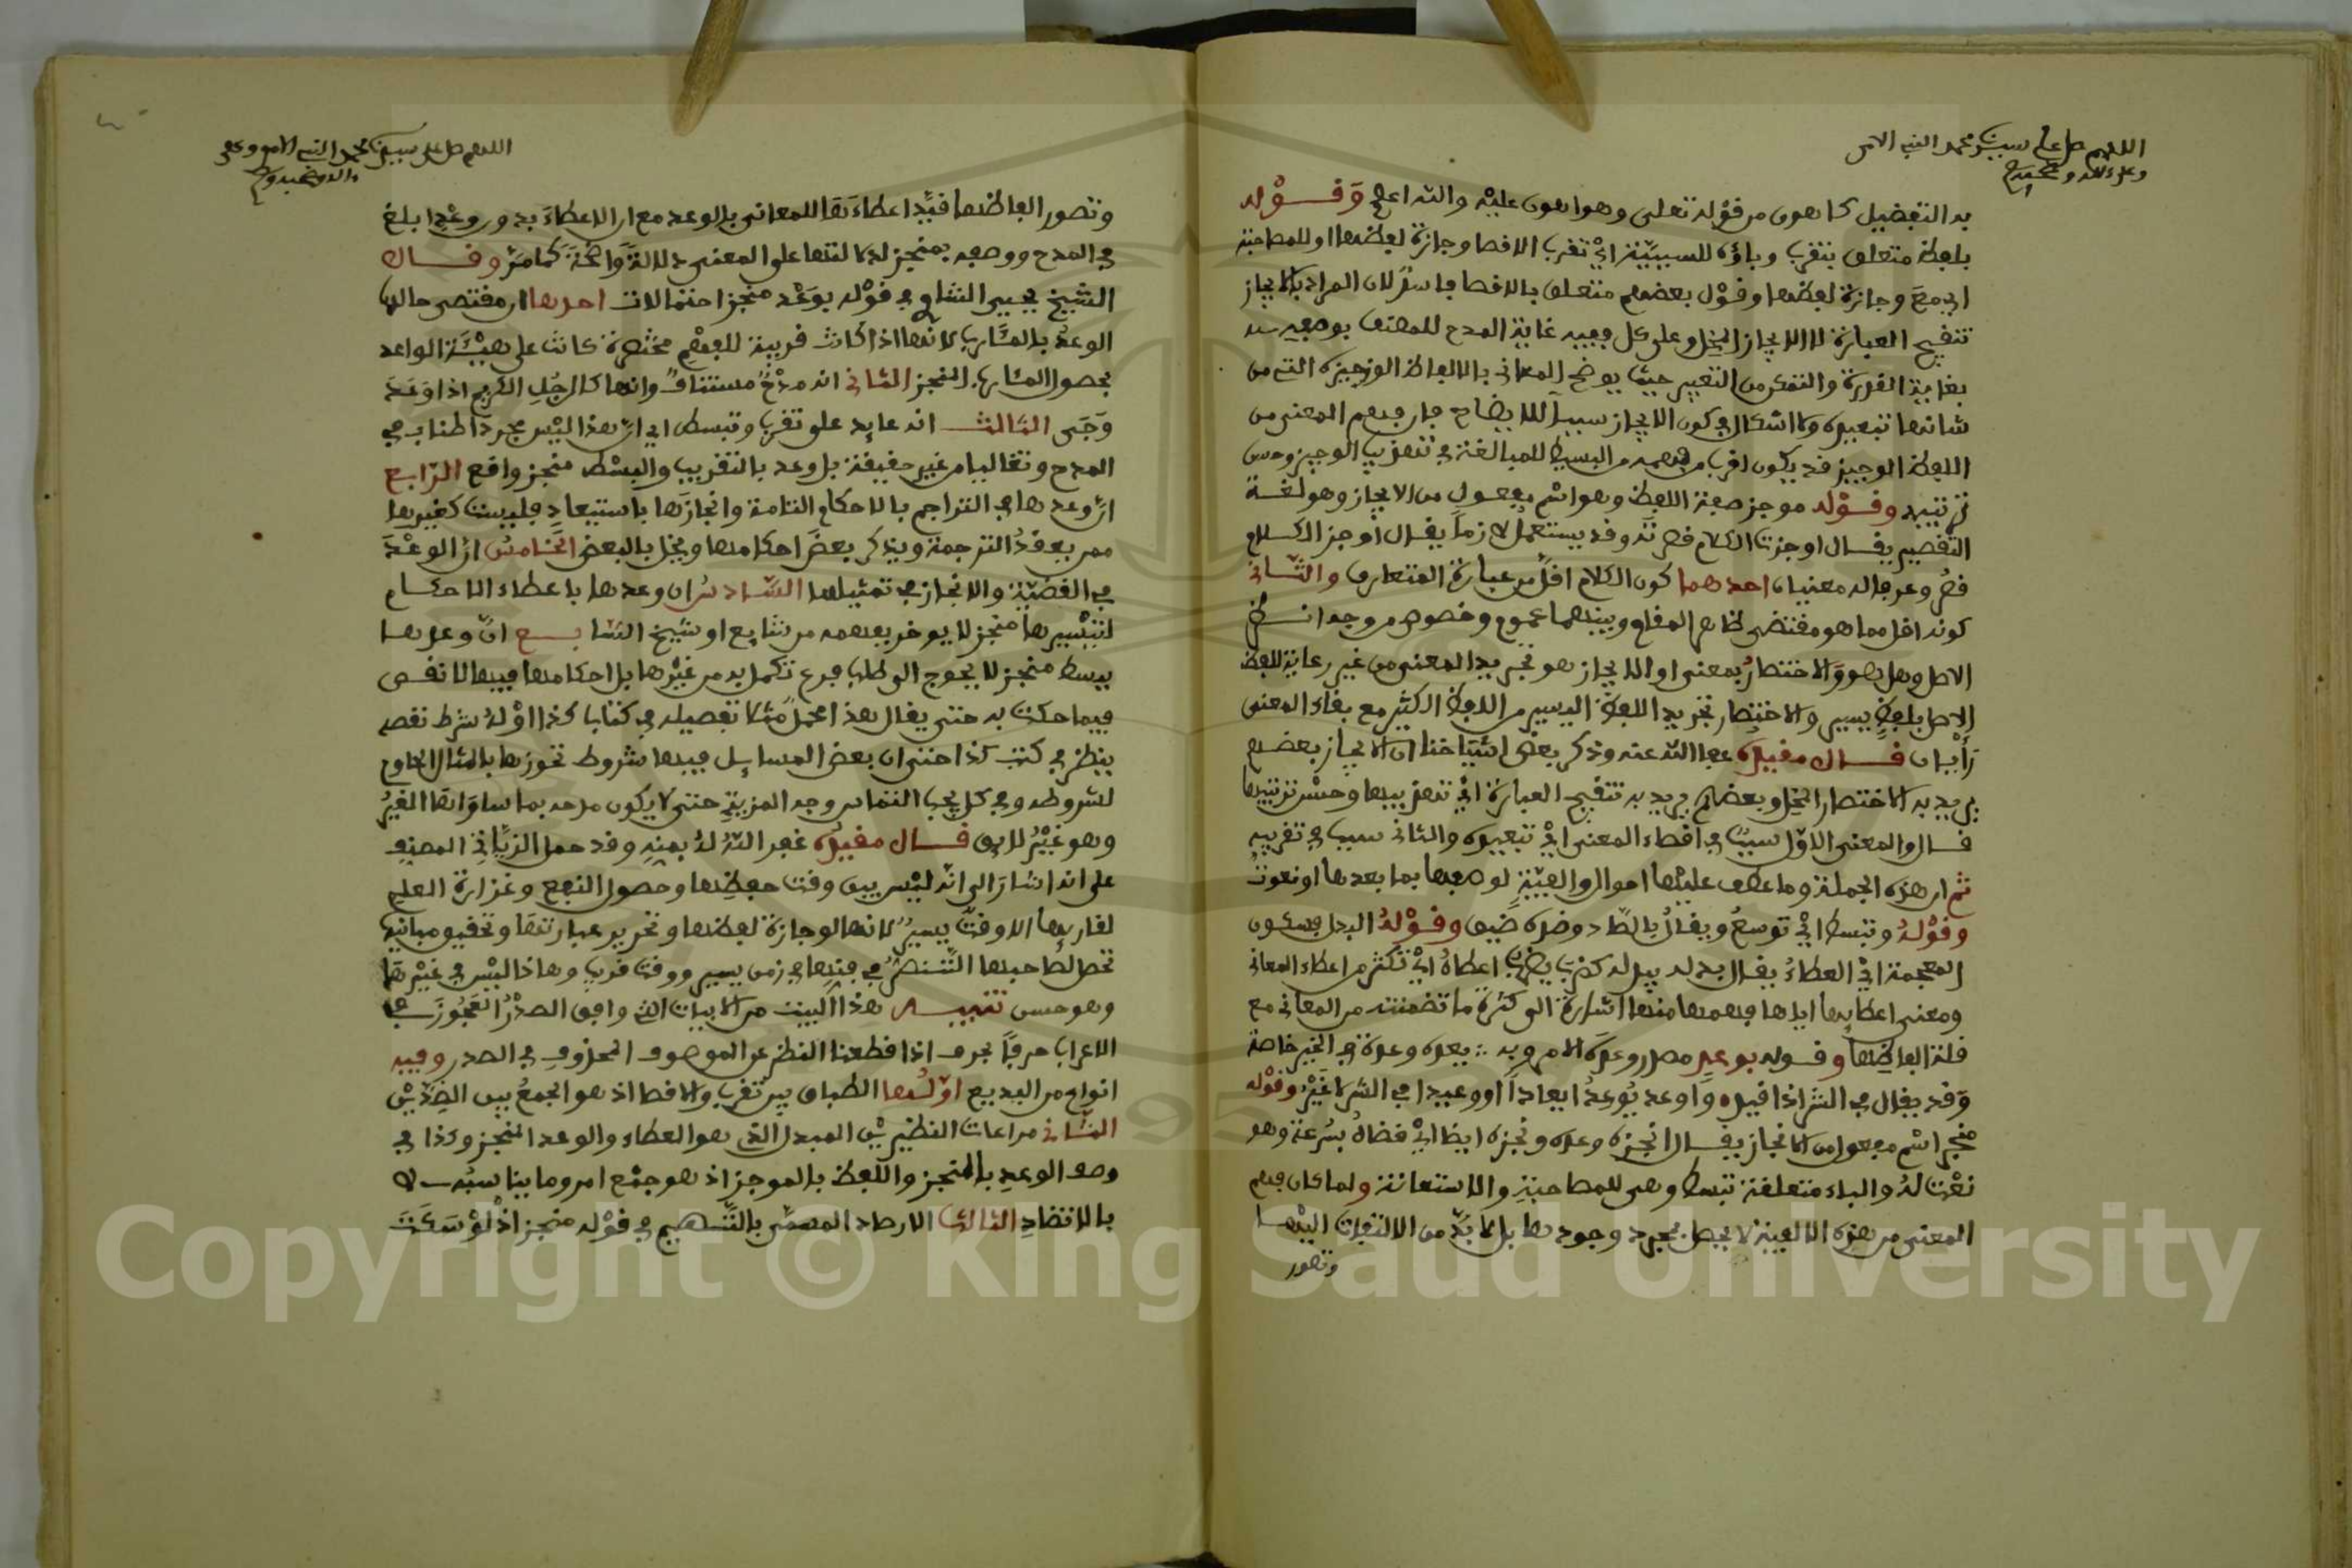 اللهم صل على سيدنا محمد النبي الامي
وعلى ءاله وصحبه
به التفضيل كما هو من قوله تعلى وهو اهون عليه والله اعلم وقوله
بلفظ متعلق بتقرب وباؤه للسببية اي تقرب الاقصا وجازة لفظها او للمصاحبة
اي مع وجازة لفظها وقول بعضهم متعلق بالاقصا فاسد لان المراد بالايجاز
تنقيح العبارة لا الايجاز المخل وعلى كل ففيه غاية المدح للمصنف بوصفه
بغاية القدرة والتمكن من التعبير حيث يوضح المعاني بالالفاظ الوجيزة التي من
شانها تبعيده ولا اشكال في كون الايجاز سببا للايضاح فان فهم المعنى من
اللفظ الوجيز قد يكون اقرب من فهمه من البسيط للمبالغة في تهذيب الوجيز وحسن
ترتيبه وقوله موجز صفة اللفظ وهو اسم مفعول من الايجاز وهو لغة
التقصير يقال اوجزت الكلام قصرته وقد يستعمل لازما يقال اوجز الكلام
قصر وعرفا له معنيان احدهما كون الكلام اقل من عبارة المتعارف والثاني
كونه اقل مما هو مقتضى ظاهر المقام وبينهما عموم وخصوص من وجه انظر
الاصل وهل هو والاختصار بمعنى او الايجاز هو تجريد المعنى من غير رعاية للفظ
الاصل بلفظ يسير والاختصار تجريد اللفظ اليسير من اللفظ الكثير مع بقاء المعنى
رأيان قال مقيده عفا الله عنه وذكر بعض اشياخنا ان الايجاز بعضهم
يريد به الاختصار المخل وبعضهم يريد به تنقيح العبارة اي تهذيبها وحسن ترتيبها
قال والمعنى الاول سبب في اقصاء المعنى اي تبعيده والثاني سبب في تقريبه
ثم ان هذه الجملة وما عطف عليها احوال والفية لوصفها بما بعدها او نعوت
وقوله وتبسط اي توسع ويقال بالصاد وضده ضيق وقوله البذل بسكون
المعجمة اي العطاء يقال بذله يبذله كضرب يضرب اعطاه اي تكثر من اعطاء المعاني
ومعنى اعطائها اياها فهمها منها اشارة الى كثرة ما تضمنته من المعاني مع
قلة الفاظها وقوله بوعد مصدر وعده الامر وبه يعده وعدة في الخير خاصة
وقد يقال في الشر اذا قيد واوعد يوعد ايعادا او وعيدا في الشر لا غير وقوله
منجز اسم مفعول من الانجاز يقال انجزه وعده ونجزه ايضا اي قضاه بسرعة وهو
نعت له والباء متعلقة بتبسط وهي للمصاحبة والاستعانة ولما كان فهم
المعنى من هذه الالفية لا يحصل بمجرد وجودها بل لا بد من الالتفات اليها
وتصور
اللهم صل على سيدنا محمد النبي الامي وعلى
ءاله وصحبه
وتصور الفاظها قيد اعطاءها للمعاني بالوعد مع ان الاعطاء بدون وعد ابلغ
في المدح ووصفه بمنجز لدلالتها على المعنى دلالة واضحة كما مر وقال
الشيخ يحيى الشاوي في قوله بوعد منجز احتمالات احدها ان مقتضى حالها
الوعد بالمئارب لانها اذا كانت قريبة للفهم مختصرة كانت على هيئة الواعد
بحصول المئارب المنجز الثاني انه مدح مستانف وانها كالرجل الكريم اذا وعد
وفى الثالث انه عايد على تقرب وتبسط اي ان هذا ليس مجرد اطناب في
المدح وتغاليا من غير حقيقة بل وعد بالتقريب والبسط منجز واقع الرابع
ان وعدها في التراجم بالاحكام التامة وانجازها باستيعاد فليست كغيرها
ممن يعقد الترجمة ويذكر بعض احكامها ويخل بالبعض الخامس ان الوعد
في القضية والانجاز في تمثيلها السادس ان وعدها باعطاء الاحكام
لتيسيرها منجز لا يوخر بفهمه من شارح او شيخ السابع ان وعدها
ببسط منجز لا يحوج الى طلب فرع تكمل به من غيرها بل احكامها فيها لا نقص
فيما حكت به حتى يقال هذا مجمل مثلا تفصيله في كتاب كذا اوله شرط نقصه
ينظر في كتب كذا حتى ان بعض المسايل فيها شروط تحوزها بالمثال الحاوي
لشروطه وفي كل يجب التماس وجه المزية حتى لا يكون مدحه بما ساواها الغير
وهو غير لايق قال مقيده غفر الله له بمنه وقد حمل الزياني المصنف
على انه اشار الى انه ليس بين وقت حفظها وحصول النفع وغزارة العلم
لقاريها الا وقت يسير لانها لوجازة لفظها وتحرير عبارتها وتحقيق مبانيها
تحصل لصاحبها التنصر في فتحها في زمن يسير ووقت قريب وهاذا ليس في غيرها
وهو حسن تنبيه هذا البيت من الابيات التي وافق الصدر العجوز في
الاعراب حرفا بحرف اذا قطعنا النظر عن الموصوف المحذوف في الصدر وفيه
انواع من البديع اولها الطباق بين تقرب والاقصا اذ هو الجمع بين الضدين
الثاني مراعات النظير بين المبذل الذي هو العطاء والوعد المنجز وكذا في
وصف الوعد بالمنجز واللفظ بالموجز اذ هو جمع امر وما يناسبه لا
بالتضاد الثالث الارصاد المسمى بالتسهيم في قوله منجز اذ لو سكت